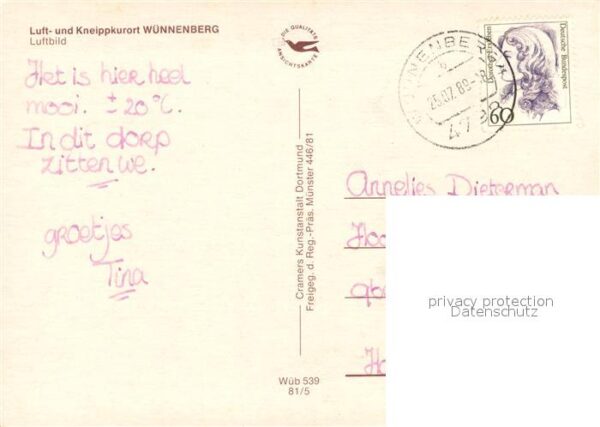 Luft- und Kneippkurort WÜNNENBERG
Luftbild
DIE QUALITÄTS
ANSICHTSKARTE
Het is hier heel
mooi. ± 20°C.
In dit dorp
zitten we.
groetjes
Tina
Cramers Kunstanstalt Dortmund
Freigeg. d. Reg.-Präs. Münster 446/81
Wüb 539
81/5
25.07.89-18
Deutsche Bundespost
60
Annelies Dieterman
privacy protection
Datenschutz